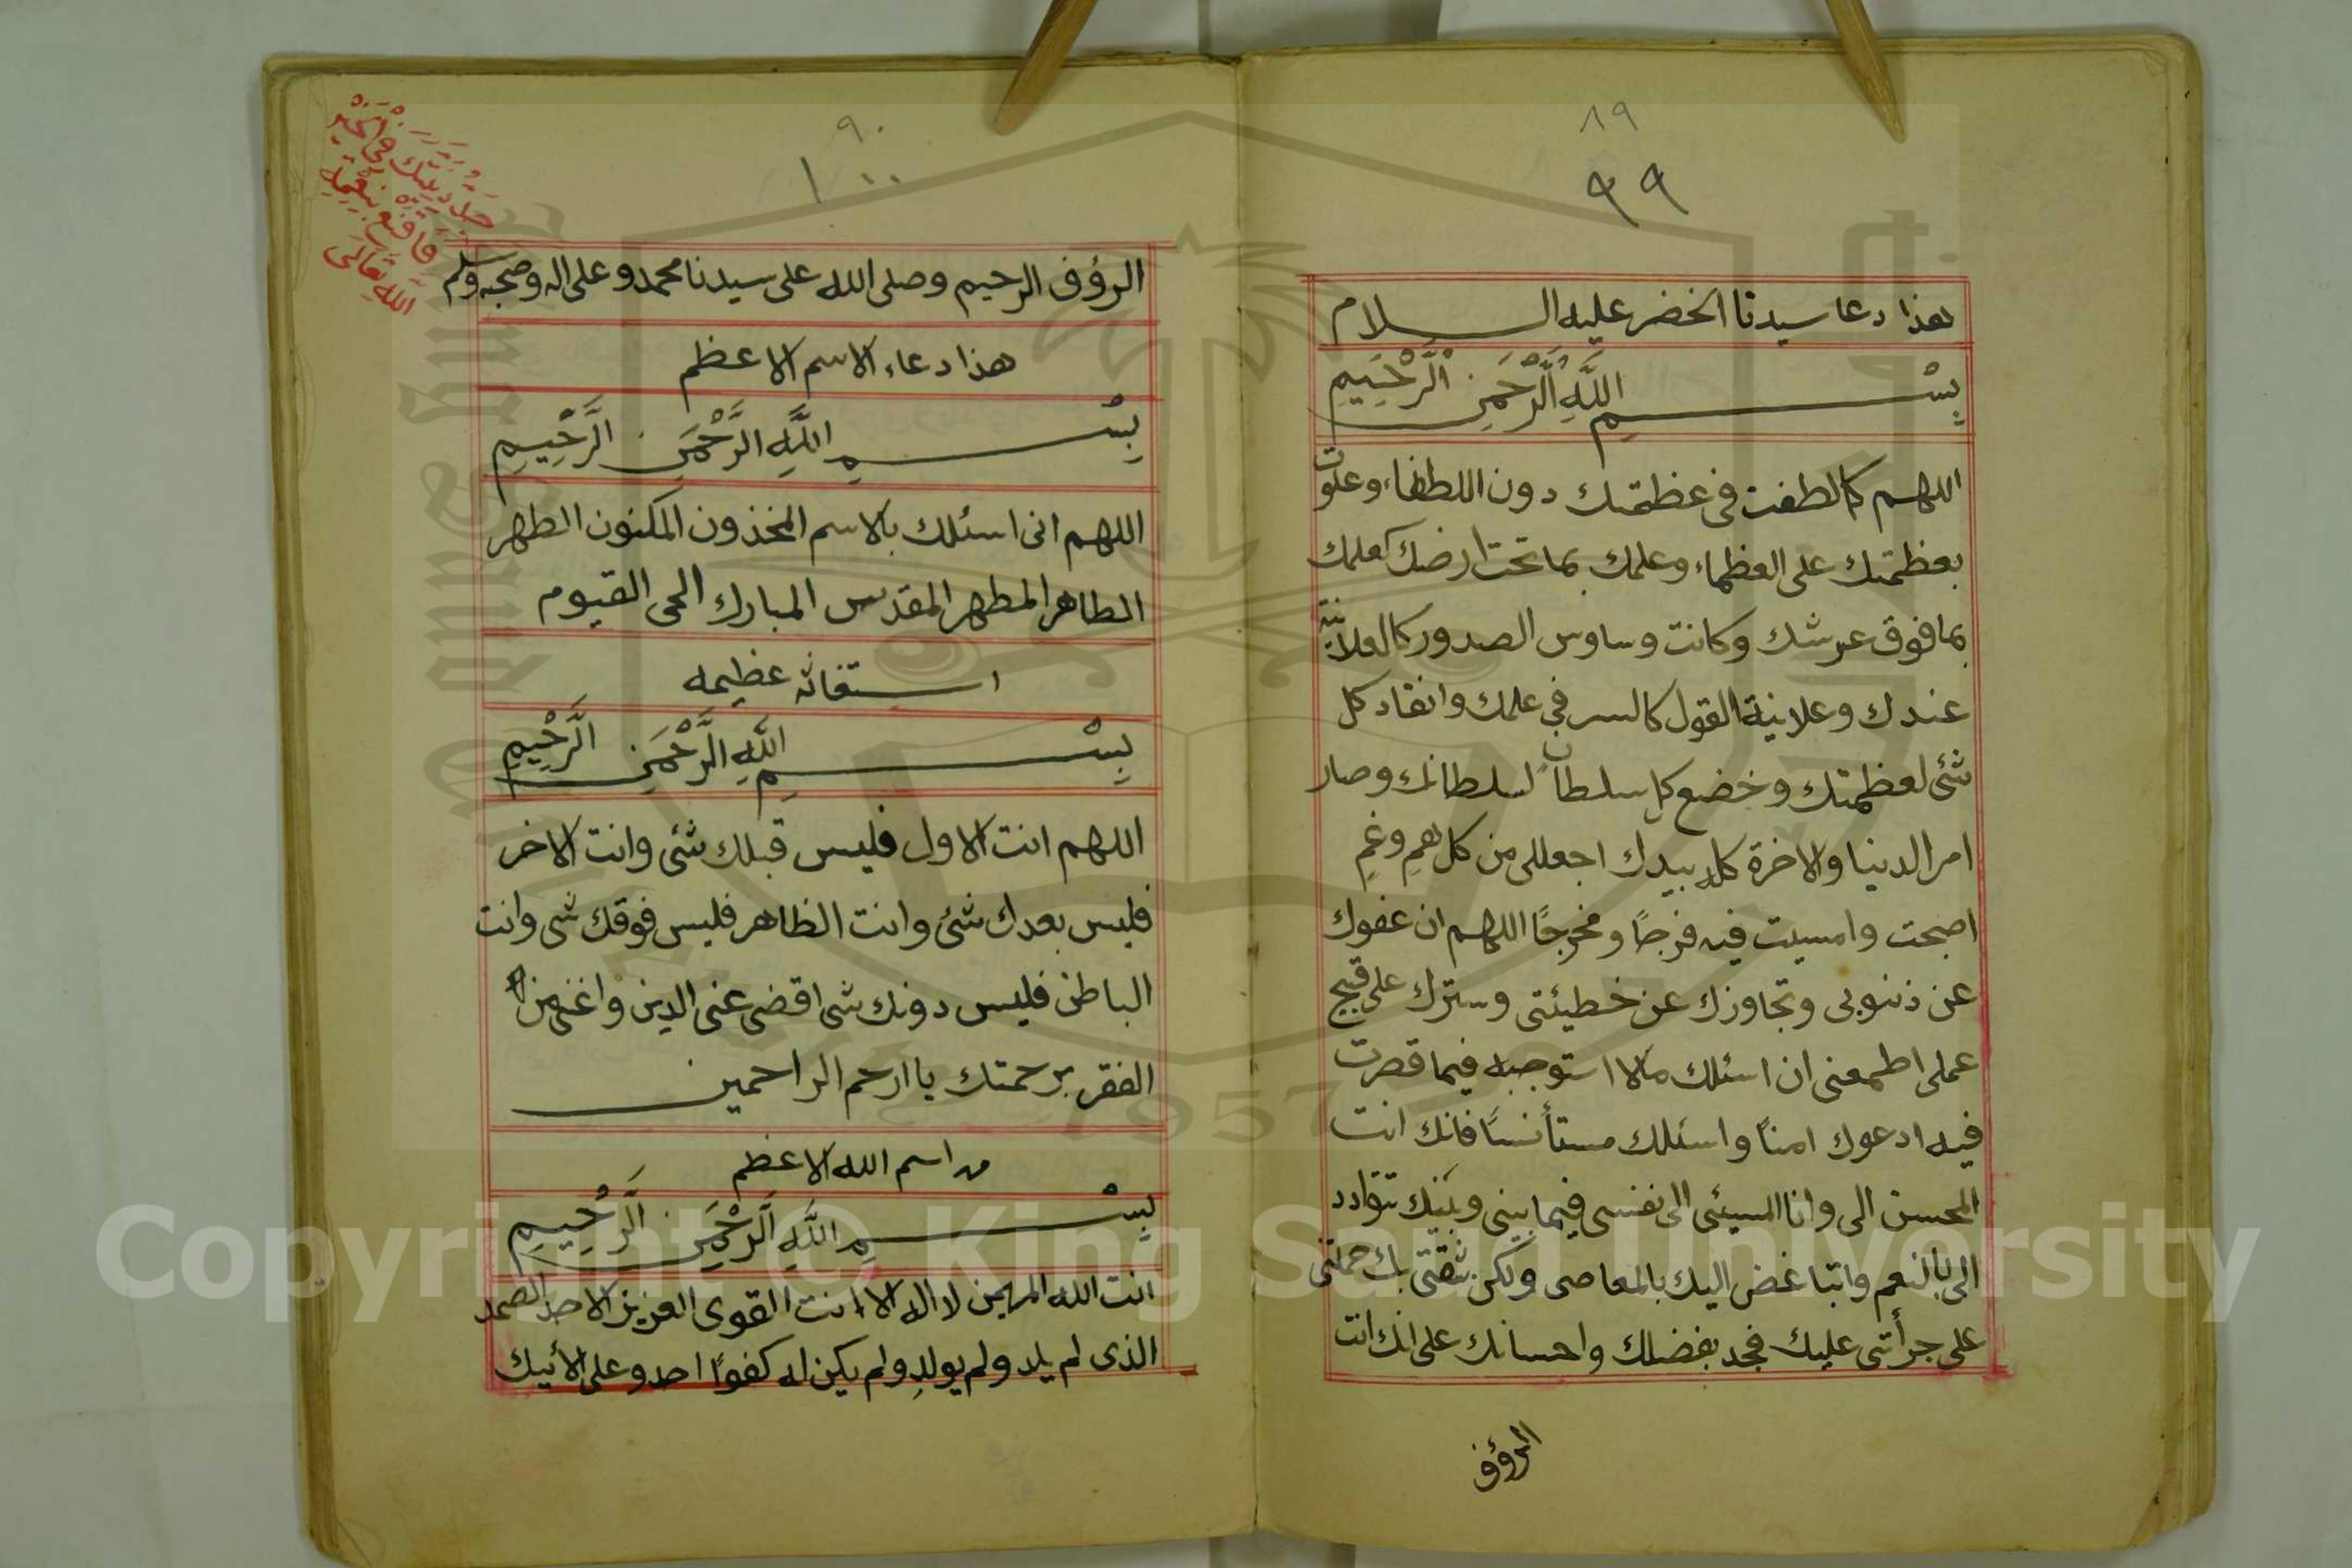 ٨٩
٩٩
هذا دعا سيدنا الخضر عليه السلام
بِسْمِ اللَّهِ الرَّحْمَنِ الرَّحِيمِ
اللهم كما لطفت فى عظمتك دون اللطفاء وعلوت
بعظمتك على العظماء وعلمك بما تحت ارضك كعلمك
بما فوق عرشك وكانت وساوس الصدور كالعلانية
عندك وعلانية القول كالسر في علمك وانقاد كل
شئ لعظمتك وخضع كل سلطان لسلطانك وصار
امر الدنيا والاخرة كله بيدك اجعللى من كل همٍ وغمٍ
اصبحت وامسيت فيه فرجًا ومخرجًا اللهم ان عفوك
عن ذنوبى وتجاوزك عن خطيئتى وسترك على قبيح
عملى اطمعنى ان اسئلك مالا استوجبه فيما قصرت
فيه ادعوك امنًا واسئلك مستأنسًا فانك انت
المحسن الى وانا المسيئى الى نفسى فيما بينى وبينك تتوادد
الى بالنعم واتباغض اليك بالمعاصى ولكن ثقتى بك حملتنى
على جرأتى عليك فجد بفضلك واحسانك على انك انت
الرؤف
٩٠
١٠٠
الرؤف الرحيم وصلى الله على سيدنا محمد وعلى اله وصحبه وسلم
هذا دعاء الاسم الاعظم
بِسْمِ اللَّهِ الرَّحْمَنِ الرَّحِيمِ
اللهم انى اسئلك بالاسم المخذون المكنون الطهر
الطاهر المطهر المقدس المبارك الحى القيوم
استغاثه عظيمه
بِسْمِ اللَّهِ الرَّحْمَنِ الرَّحِيمِ
اللهم انت الاول فليس قبلك شئ وانت الاخر
فليس بعدك شئ وانت الظاهر فليس فوقك شى وانت
الباطن فليس دونك شى اقضى عنى الدين واغنى من
الفقر برحمتك يا ارحم الراحمين
اسم الله الاعظم
بِسْمِ اللَّهِ الرَّحْمَنِ الرَّحِيمِ
انت الله المهيمن لا اله الا انت القوى العزيز الاحد الصمد
الذى لم يلد ولم يولد ولم يكن له كفوًا احد وعلى
الله تعالى
Copyright © King Saud University
1957